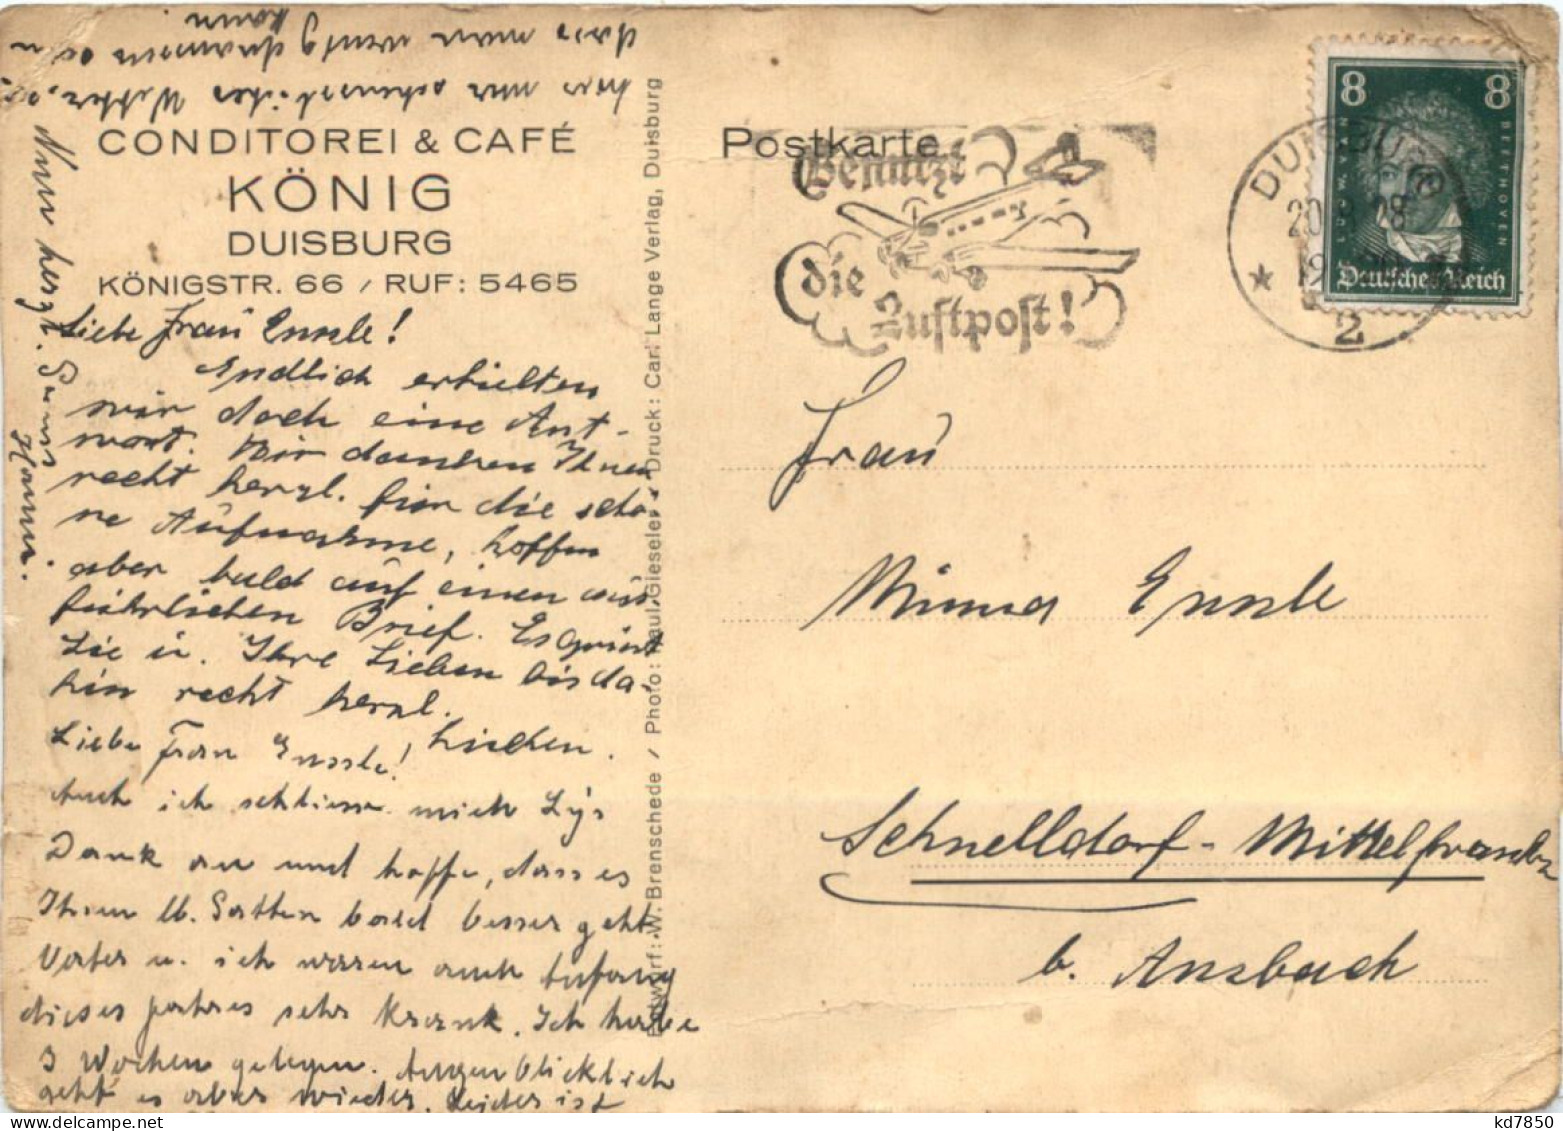 CONDITOREI & CAFÉ
KÖNIG
DUISBURG
KÖNIGSTR. 66 / RUF: 5465
Liebe Frau Enssle!
Endlich erhielten
wir doch eine Ant-
wort. Wir danken Ihnen
recht herzl. für die schö-
ne Aufnahme, hoffen
aber bald auf einen aus-
führlichen Brief. Es grüsst
Sie u. Ihre Lieben bis da-
hin recht herzl.
Lieschen.
Liebe Frau Enssle!
Auch ich schliesse mich Ly's
Dank an und hoffe, dass es
Ihrem lb. Gatten bald besser geht.
Vater u. ich waren auch Anfang
dieses Jahres sehr krank. Ich habe
3 Wochen gelegen. Augenblicklich
geht es aber wieder. Leider ist
hier nur scheussliches Wetter, so
dass man wenig draussen sein
kann.
Nun herzl. Gruss
Hanni.
Entwurf: W. Brenschede / Photo: Paul Gieseler / Druck: Carl Lange Verlag, Duisburg
Postkarte
Benutzt
die
Luftpost!
DUISBURG
2
8 8
LUDW. VAN BEETHOVEN
Deutsches Reich
Frau
Minna Enssle
Schnelldorf - Mittelfranken
b. Ansbach
kd7850